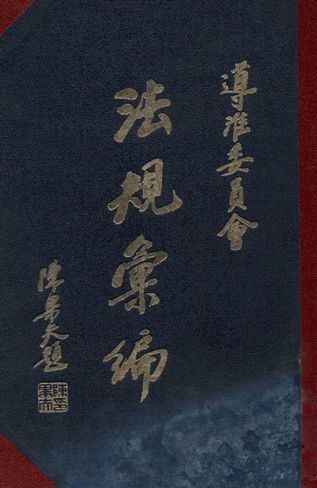 導淮委員會
法規彙編
陳果夫題